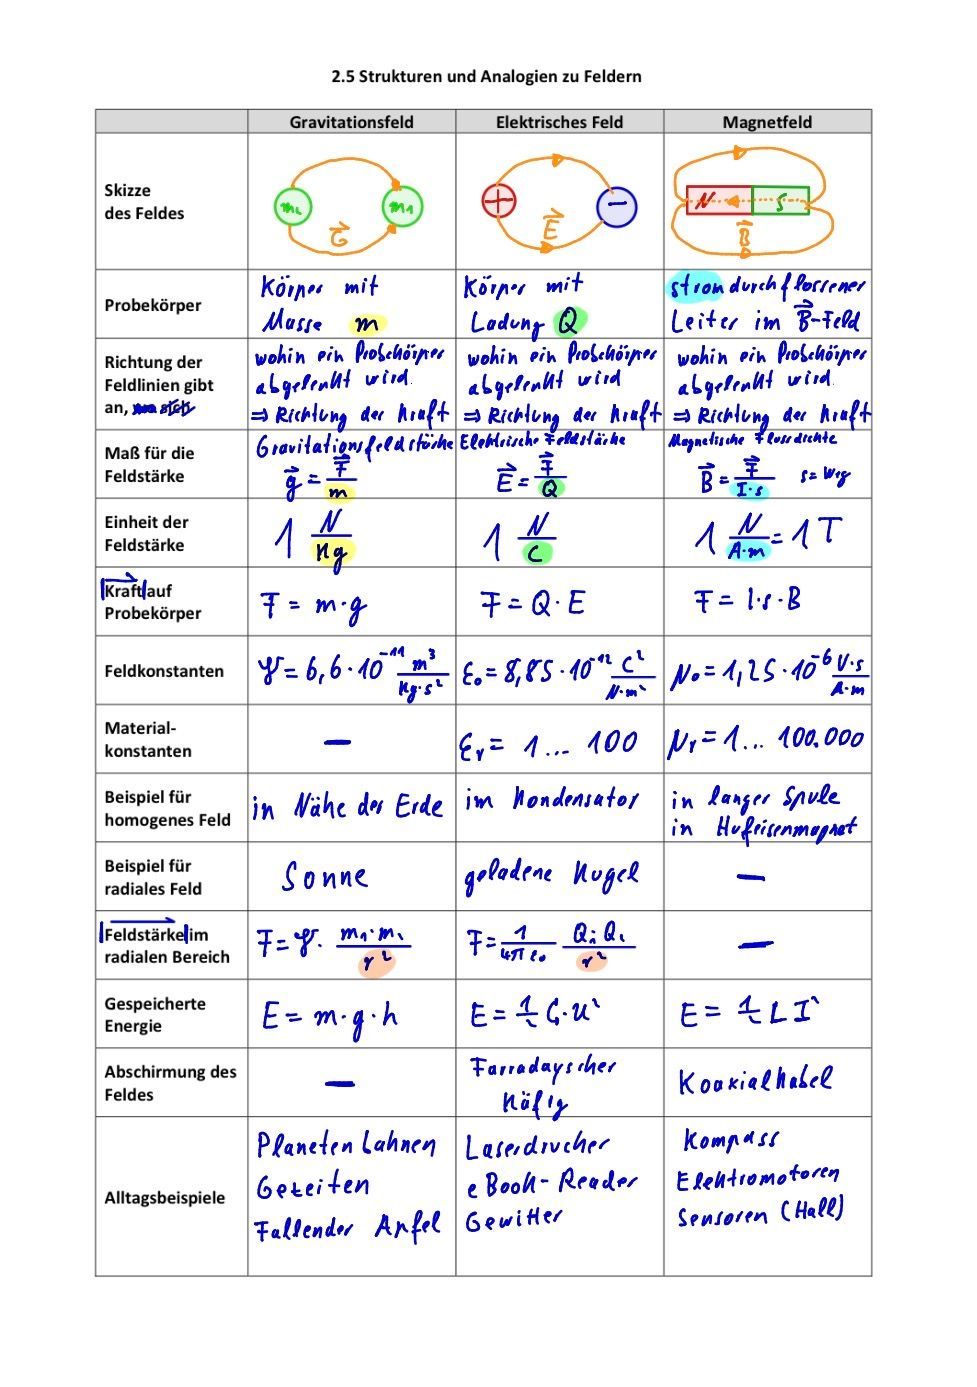 2.5 Strukturen und Analogien zu Feldern
Gravitationsfeld Elektrisches Feld Magnetfeld
Skizze
des Feldes
m₂ m₁ G⃗
+ − E⃗
N S B⃗
Probekörper
Körper mit
Masse m
Körper mit
Ladung Q
stromdurchflossener
Leiter im B⃗-Feld
Richtung der
Feldlinien gibt
an,
wohin ein Probekörper
abgelenkt wird.
⇒ Richtung der Kraft
wohin ein Probekörper
abgelenkt wird.
⇒ Richtung der Kraft
wohin ein Probekörper
abgelenkt wird.
⇒ Richtung der Kraft
Maß für die
Feldstärke
Gravitationsfeldstärke
g⃗ = F⃗/m
Elektrische Feldstärke
E⃗ = F⃗/Q
Magnetische Flussdichte
B⃗ = F⃗/(I·s) s = Weg
Einheit der
Feldstärke
1 N/kg
1 N/C
1 N/(A·m) = 1 T
Kraft auf
Probekörper
F = m·g
F = Q·E
F = I·s·B
Feldkonstanten
γ = 6,6·10⁻¹¹ m³/(kg·s²)
ε₀ = 8,85·10⁻¹² C²/(N·m²)
μ₀ = 1,25·10⁻⁶ V·s/(A·m)
Material-
konstanten
—
εr = 1... 100
μr = 1... 100.000
Beispiel für
homogenes Feld
in Nähe der Erde
im Kondensator
in langer Spule
in Hufeisenmagnet
Beispiel für
radiales Feld
Sonne
geladene Kugel
—
Feldstärke im
radialen Bereich
F = γ · m₁·m₂/r²
F = 1/(4πε₀) Q₁·Q₂/r²
—
Gespeicherte
Energie
E = m·g·h
E = ½ C·U²
E = ½ L I²
Abschirmung des
Feldes
—
Farradayscher
Käfig
Koaxialkabel
Alltagsbeispiele
Planetenbahnen
Gezeiten
Fallender Apfel
Laserdrucker
eBook-Reader
Gewitter
Kompass
Elektromotoren
Sensoren (Hall)